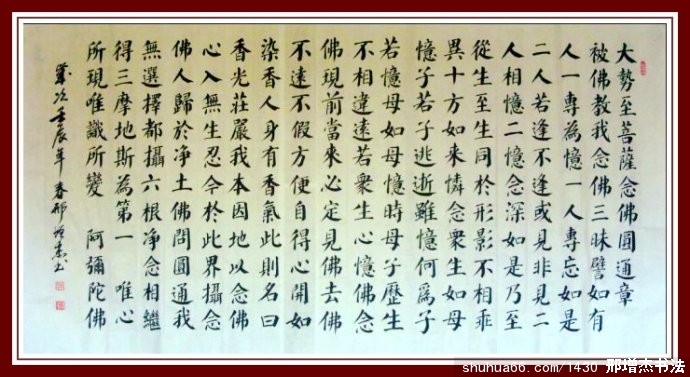 大勢至菩薩念佛圓通章
被佛教我念佛三昧譬如有
人一專為憶一人專忘如是
二人若逢不逢或見非見二
人相憶二憶念深如是乃至
從生至生同於形影不相乖
異十方如來憐念衆生如母
憶子若子逃逝雖憶何爲子
若憶母如母憶時母子歷生
不相違遠若衆生心憶佛念
佛現前當來必定見佛去佛
不遠不假方便自得心開如
染香人身有香氣此則名曰
香光莊嚴我本因地以念佛
心入無生忍今於此界攝念
佛人歸於净土佛問圓通我
無選擇都攝六根净念相繼
得三摩地斯為第一 唯心
所現唯識所變 阿彌陀佛
歲次壬辰年春邢增杰书
shuhua66.com/1430 邢增杰书法